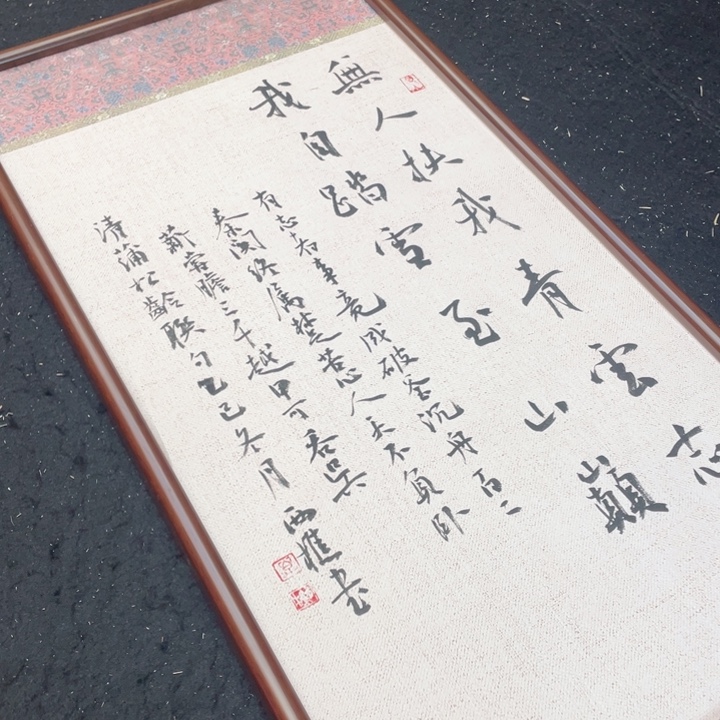 無人扶我青雲志
我自踏雪至山巔
有志者事竟成破釜沉舟百二
秦関終属楚苦心人天不負卧
薪嘗膽三千越甲可吞吳
清蒲松齡聯句乙巳冬月西樵书